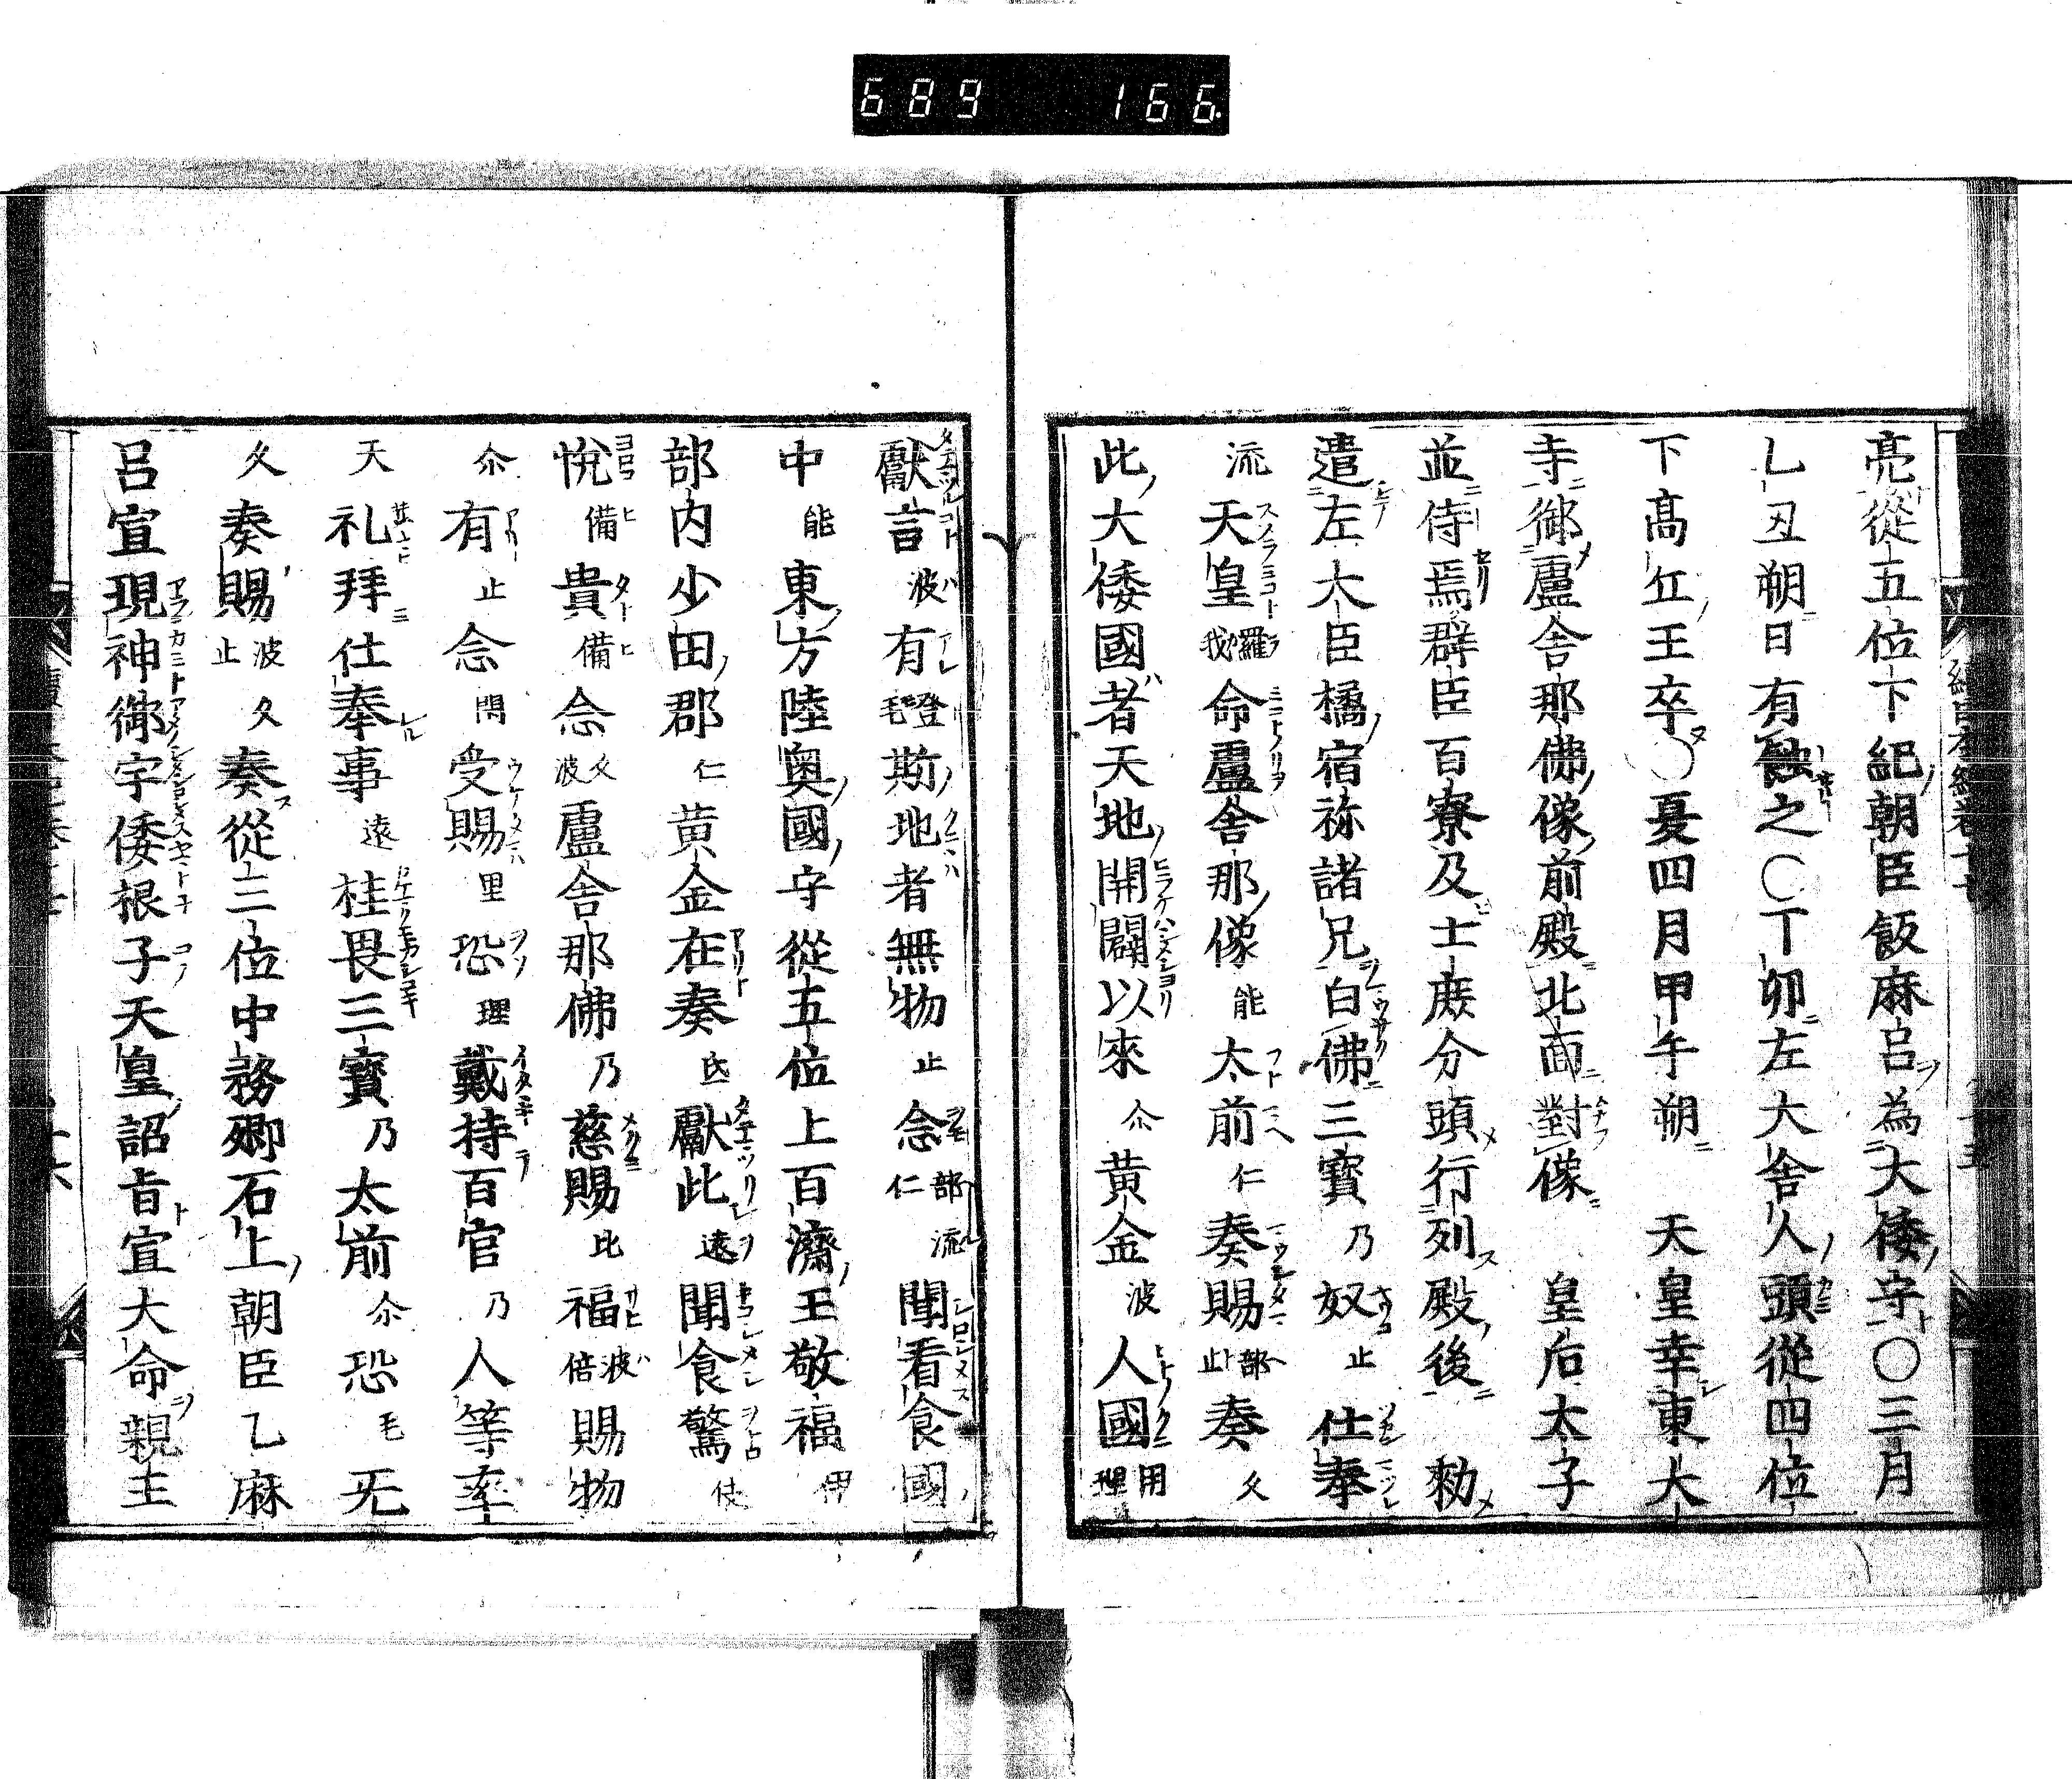 689 166
亮從五位下紀朝臣飯麻呂為大倭守○三月
乚丑朔日有蝕之○丁卯左大舍人頭從四位
下髙丘王卒○夏四月甲午朔 天皇幸東大
寺御盧舍那佛像前殿北面對像 皇后太子
並侍焉群臣百寮及士庶分頭行列殿後 勅
遣左大臣橘宿祢諸兄白佛三寶乃奴止仕奉
流天皇羅我命盧舍那像能太前仁奏賜部止奏久
此大倭國者天地開闢以來尒黄金波人國用理
獻言波有登毛斯地者無物止念部流仁聞看食國
中能東方陸奥國守從五位上百濟王敬福伊
部内少田郡仁黄金在奏氐獻此遠聞食驚伎
悅備貴備念久波盧舍那佛乃慈賜比福波倍賜物
尒有止念閇受賜里恐理戴持百官乃人等率
天礼拜仕奉事遠桂畏三寶乃太前尒恐毛无
久奏賜波久止奏從三位中務卿石上朝臣乙麻
呂宣現神御宇倭根子天皇詔旨宣大命親王